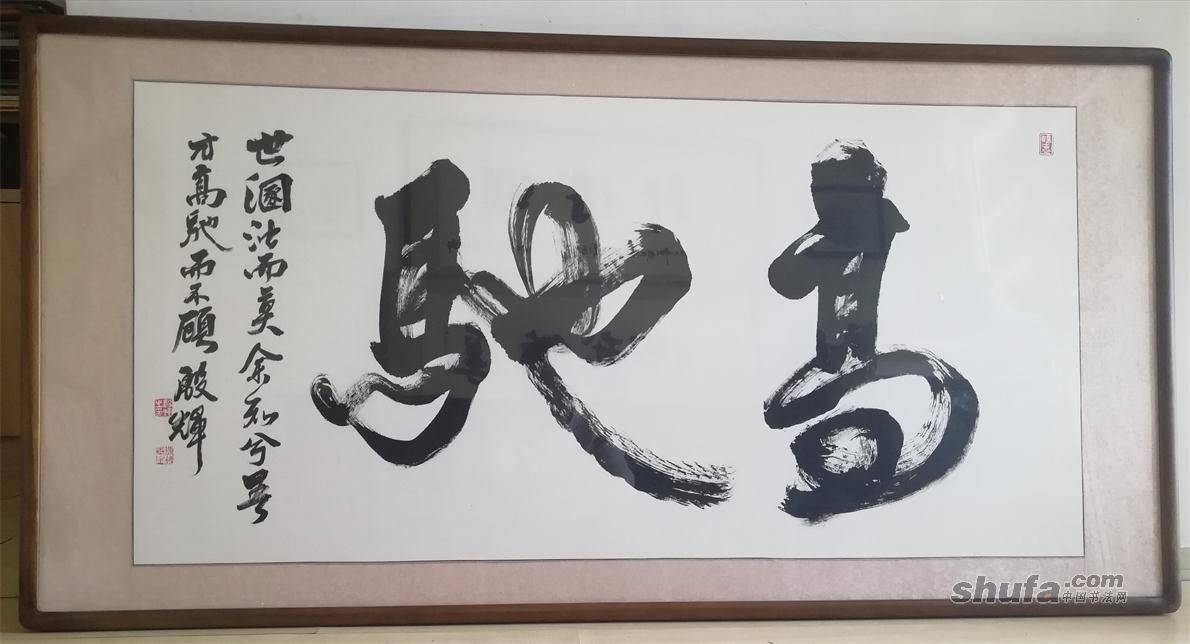 高馳
世溷沽而莫余知兮吾
方高馳而不顧 殷輝
shufa.com
中国书法网